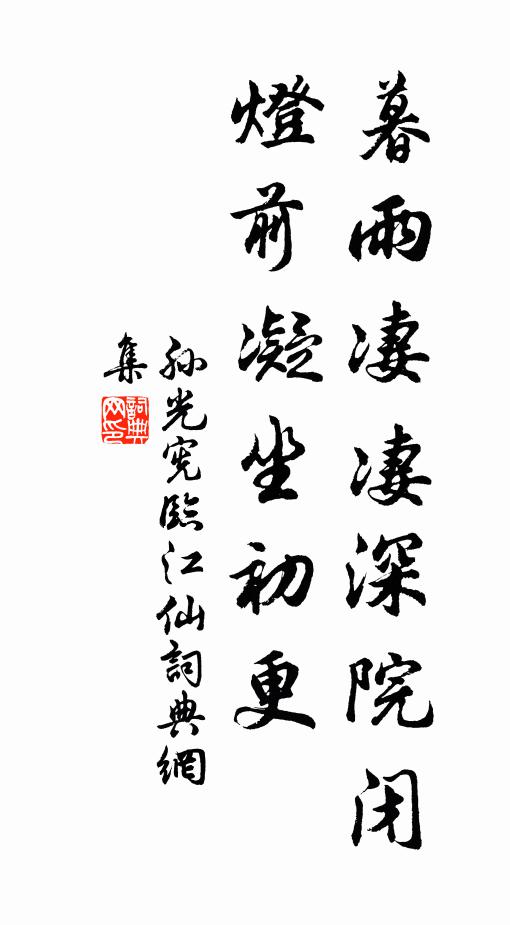 暮雨凄凄深院闭
燈前凝坐初更
孙光宪臨江仙詞典網
集
詞典
网印